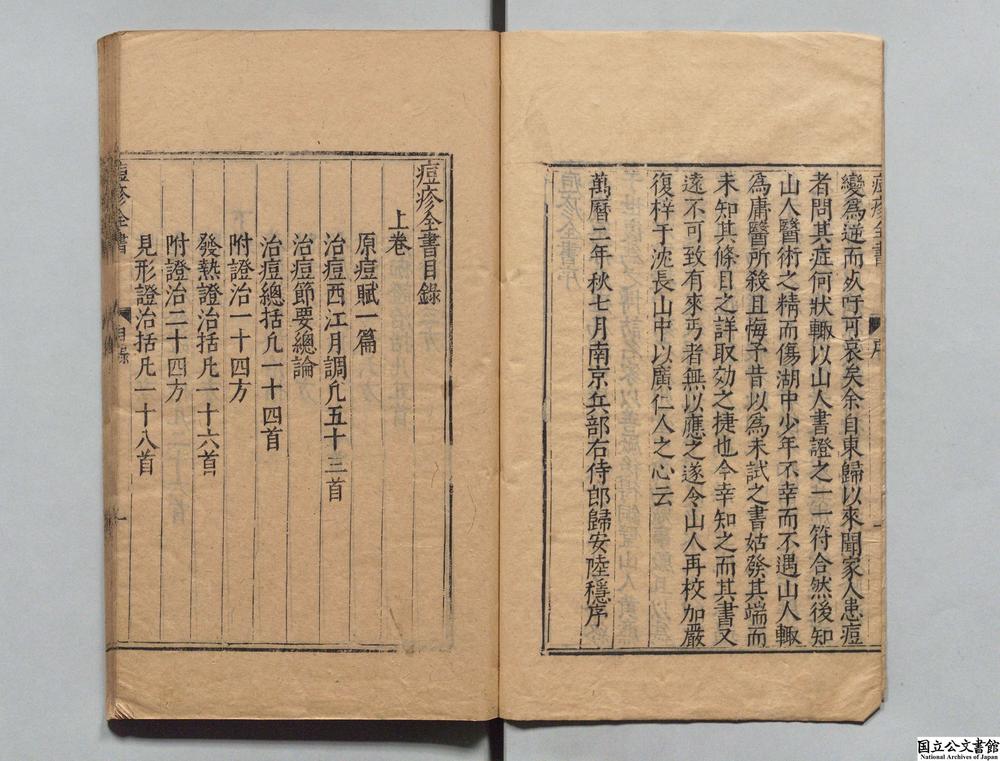 痘疹全書 序
變爲逆而死吁可哀矣余自東歸以來聞家人患痘
者問其症何狀輙以山人書證之一一符合然後知
山人醫術之精而傷湖中少年不幸而不遇山人輙
爲庸醫所殺且悔予昔以爲未試之書姑發其端而
未知其條目之詳取効之捷也今幸知之而其書又
遠不可致有來丐者無以應之遂令山人再校加嚴
復梓于沈長山中以廣仁人之心云
萬曆二年秋七月南京兵部右侍郎歸安陸穩序
痘疹全書目錄
上卷
原痘賦一篇
治痘西江月調凢五十三首
治痘節要總論
治痘總括凢一十四首
附證治一十四方
發熱證治括凢一十六首
附證治二十四方
見形證治括凢一十八首
痘疹全書 目錄 一
国立公文書館
National Archives of Japan